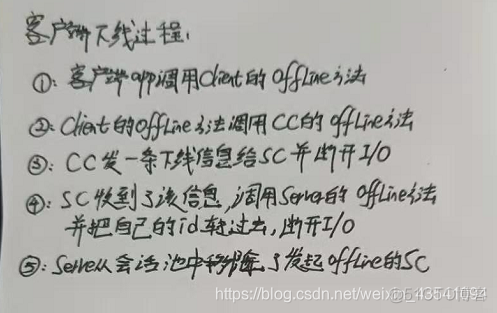 客户端下线过程:
①: 客户端app调用Client的offLine方法
②: Client的offLine方法调用CC的offLine方法
③: CC发一条下线信息给SC并断开I/O
④: SC收到了该信息,调用Server的offLine方法
并把自己的id转过去,断开I/O
⑤: Serve从会话池中移除了发起offLine的SC
https://blog.csdn.net/weixin_43541094